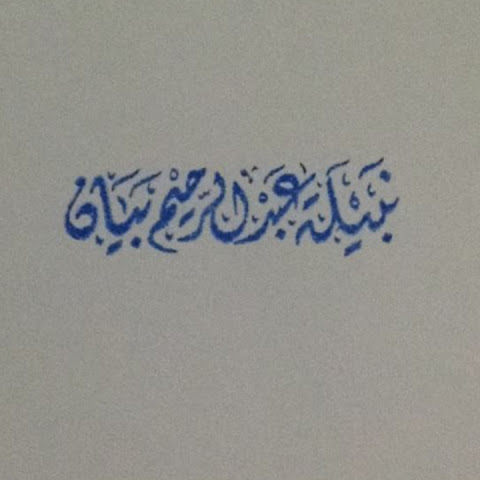 نبيلة عبد الرحيم بيان